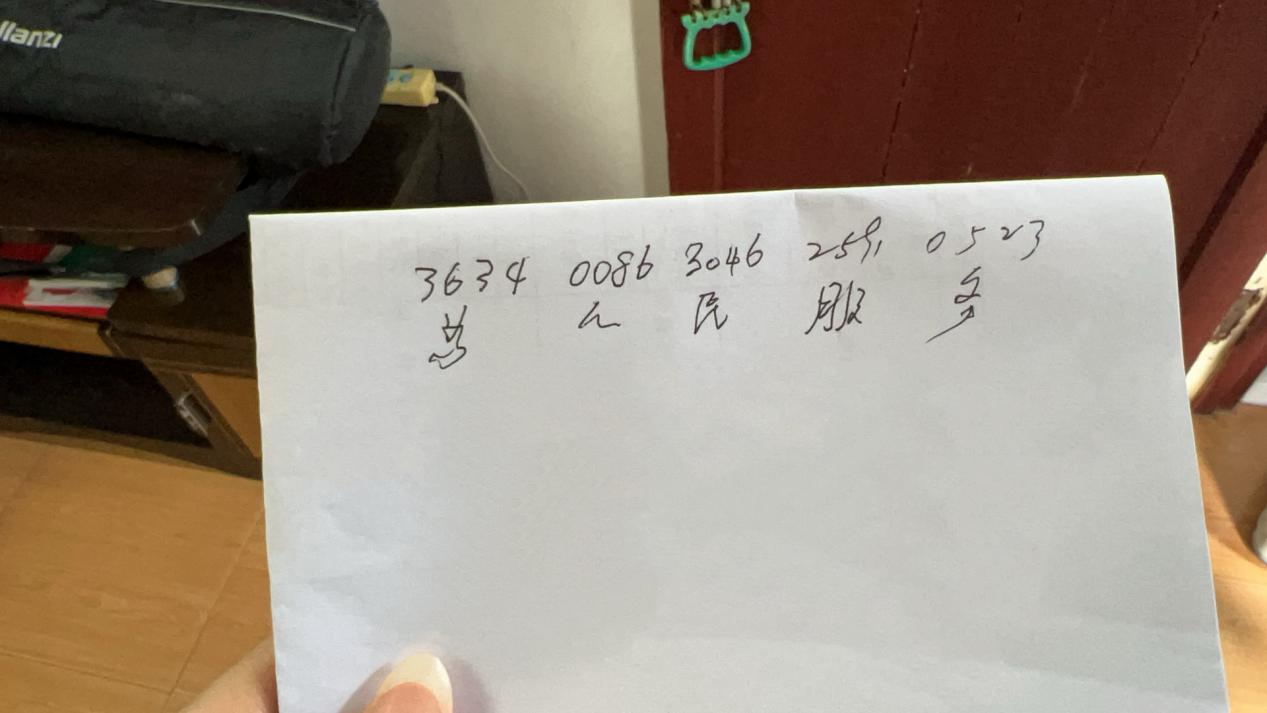 llanzi
3634 0086 3046 2591 0523
为 人 民 服 务